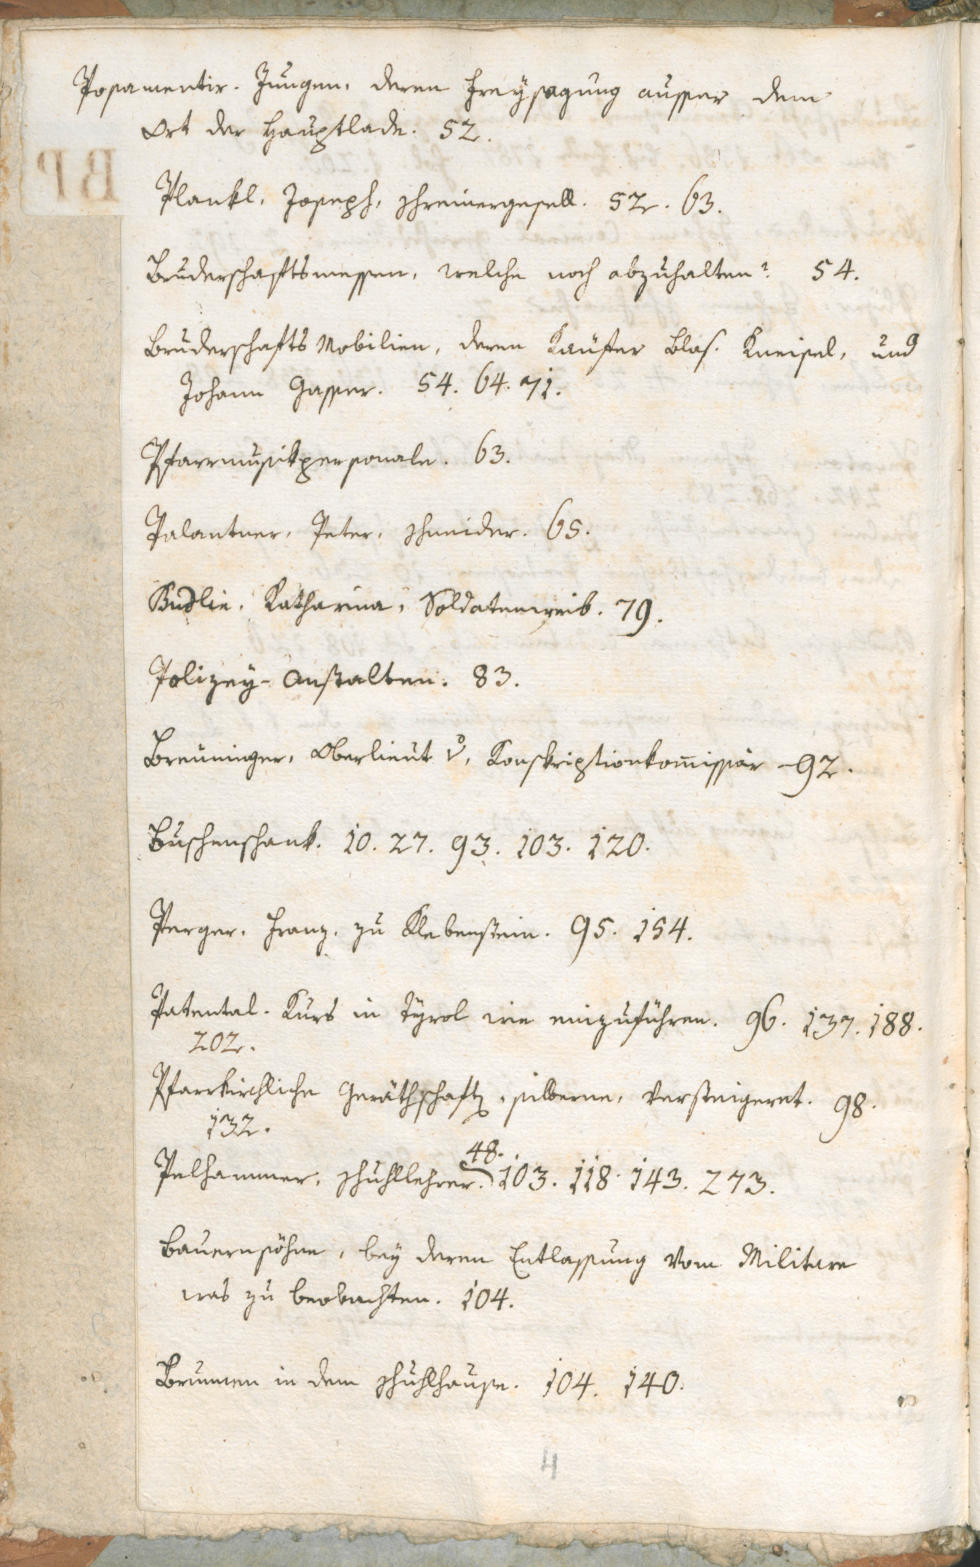 Posamentir-Jungen, deren Freysagung ausser dem
Ort der Hauptlade. 52.
BP
Plankl, Joseph, Schreinergesell. 52. 63.
Bruderschaftsmessen, welche noch abzuhalten? 54.
Bruderschafts Mobilien, deren Käufer Blas. Kneisel, und
Johann Gasser. 54. 64. 71.
Pfarrmusikpersonale. 63.
Palantner, Peter, Schneider. 65.
Katharina, Soldatenweib. 79.
Polizey-Anstalten. 83.
Breuninger, Oberlieut Konskriptionskom̅issär 92.
Buschenschank. 10. 27. 93. 103. 120.
Perger, Franz, zu Klebenstein. 95. 154.
Patental-Kurs in Tyrol wie einzuführen. 96. 137. 188.
202.
Pfarrkirchliche Geräthschaft, silberne, versteigeret. 98.
132.
48.
Pelhammer, Schullehrer. 103. 118. 143. 273.
Bauernsöhne, bey deren Entlassung vom Militare
was zu beobachten. 104.
Brunnen in dem Schulhause. 104. 140.
4